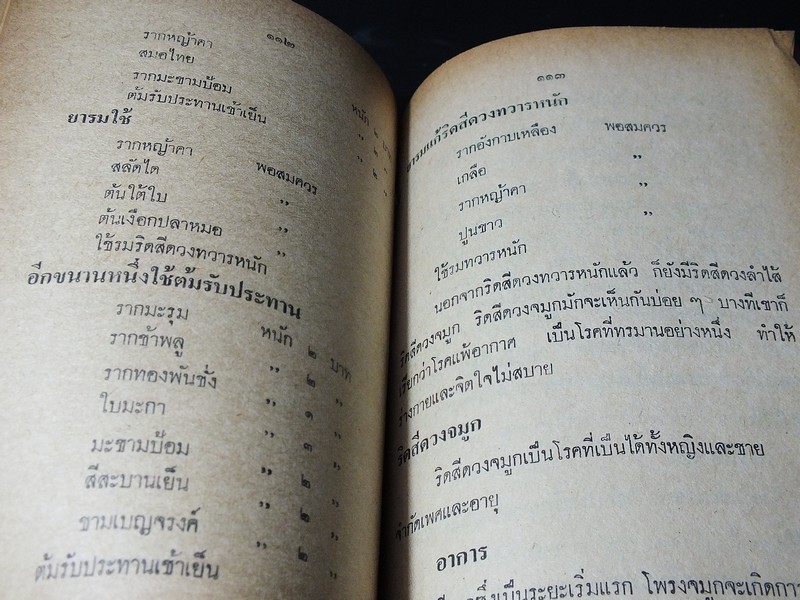 ๑๑๒
รากหญ้าคา หนัก ๒ บาท
สมอไทย " ๒ "
รากมะขามป้อม " ๒ "
ต้มรับประทานเช้าเย็น
ยารมใช้
รากหญ้าคา พอสมควร
สลัดได "
ต้นใต้ใบ "
ต้นเงือกปลาหมอ "
ใช้รมริดสีดวงทวารหนัก
อีกขนานหนึ่งใช้ต้มรับประทาน
รากมะรุม หนัก ๒ บาท
รากช้าพลู " ๒ "
รากทองพันชั่ง " ๑ "
ใบมะกา " ๓ "
มะขามป้อม " ๒ "
สีสะบานเย็น " ๒ "
ชามเบญจรงค์ " ๒ "
ต้มรับประทานเช้าเย็น
๑๑๓
ยารมแก้ริดสีดวงทวารหนัก
รากอังกาบเหลือง พอสมควร
เกลือ "
รากหญ้าคา "
ปูนขาว "
ใช้รมทวารหนัก
นอกจากริดสีดวงทวารหนักแล้ว ก็ยังมีริดสีดวงลำไส้
ริดสีดวงจมูก ริดสีดวงจมูกมักจะเห็นกันบ่อย ๆ บางทีเขาก็
เรียกว่าโรคแพ้อากาศ เป็นโรคที่ทรมานอย่างหนึ่ง ทำให้
ร่างกายและจิตใจไม่สบาย
ริดสีดวงจมูก
ริดสีดวงจมูกเป็นโรคที่เป็นได้ทั้งหญิงและชาย
จำกัดเพศและอายุ
อาการ
ซึ่งเป็นระยะเริ่มแรก โพรงจมูกจะเกิดการ